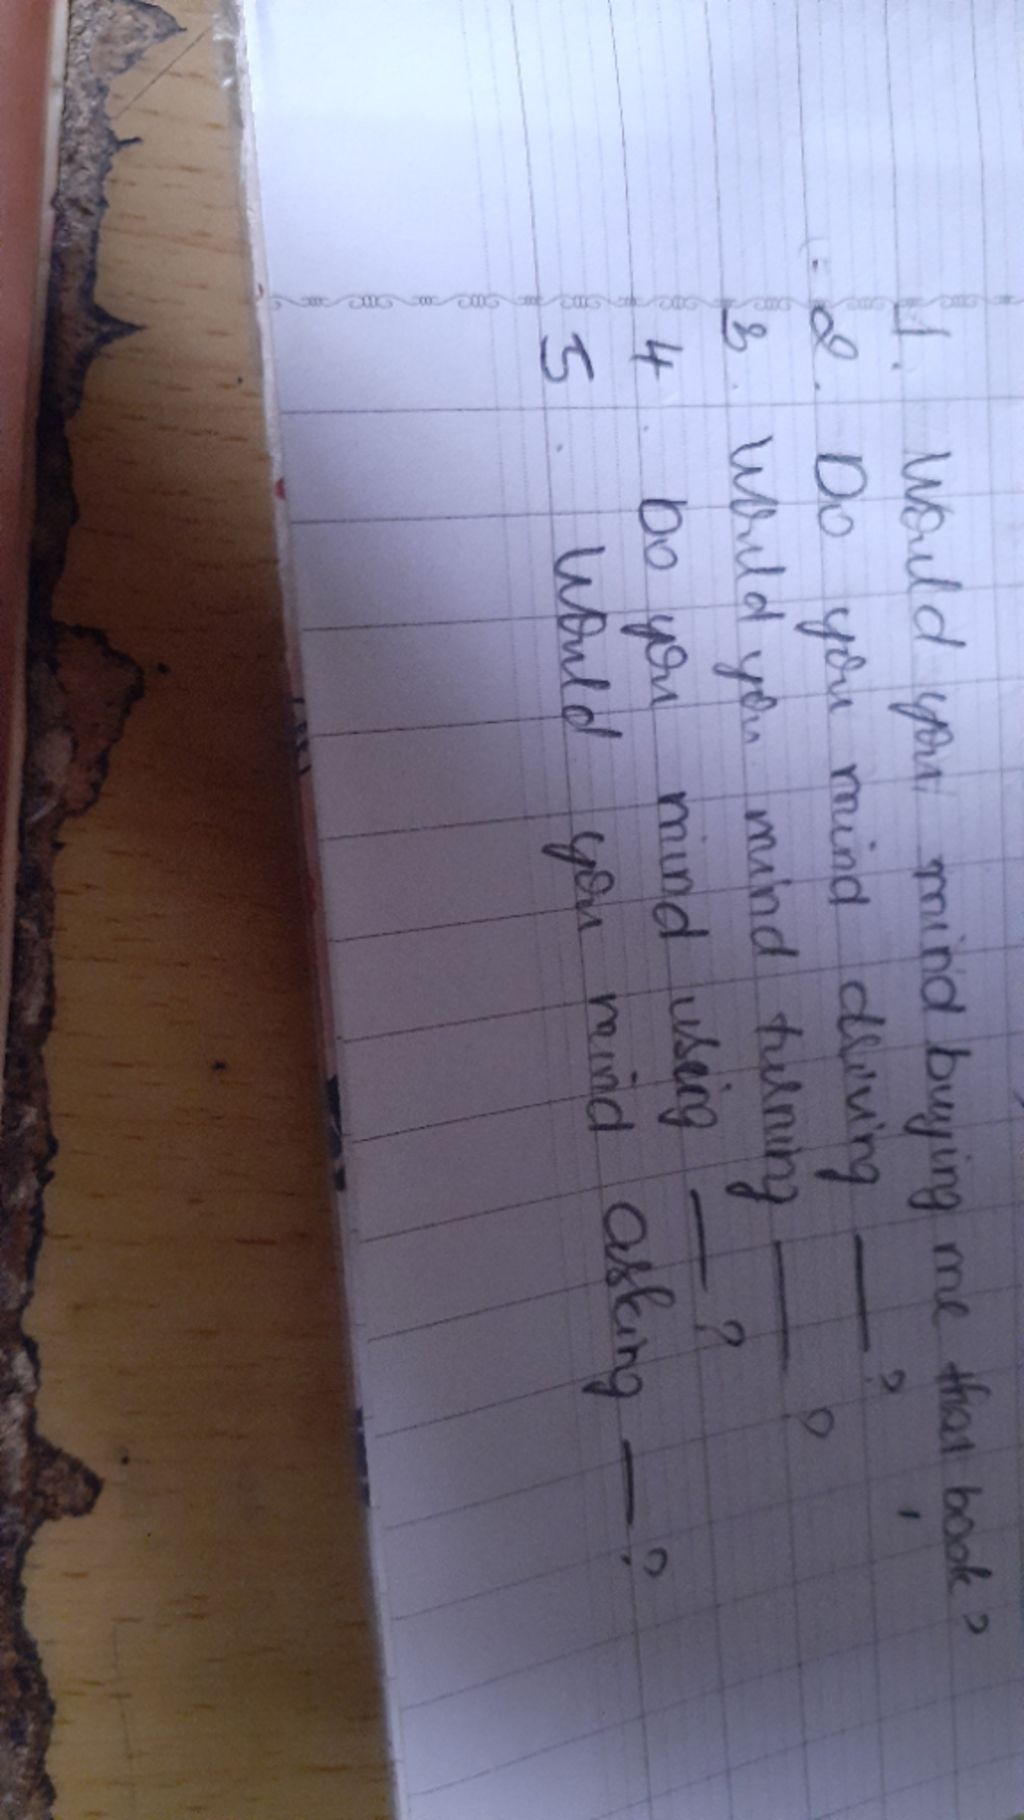 1. Would you mind buying me that book?
2. Do you mind driving ___?
3. Would you mind turning ___?
4. Do you mind using ___?
5. Would you mind asking ___?